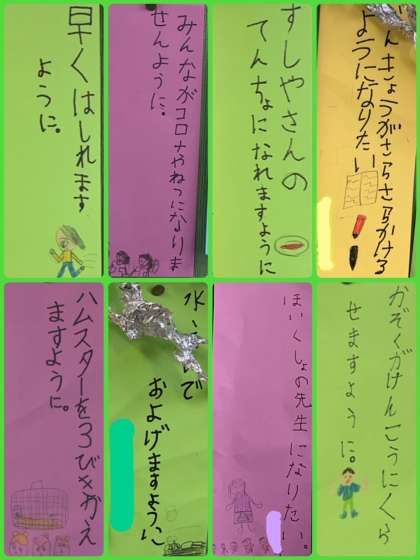 早くはしれます
ように。
みんながコロナやねつになりま
せんように。
すしやさんの
てんちょになれますように
んきょうがさらさらかける
ようになりたい
ハムスターを3びきかえ
ますように。
水いで
およげますように
ほいくしょの先生になりたい。
かぞくがけんこうにくら
せますように。